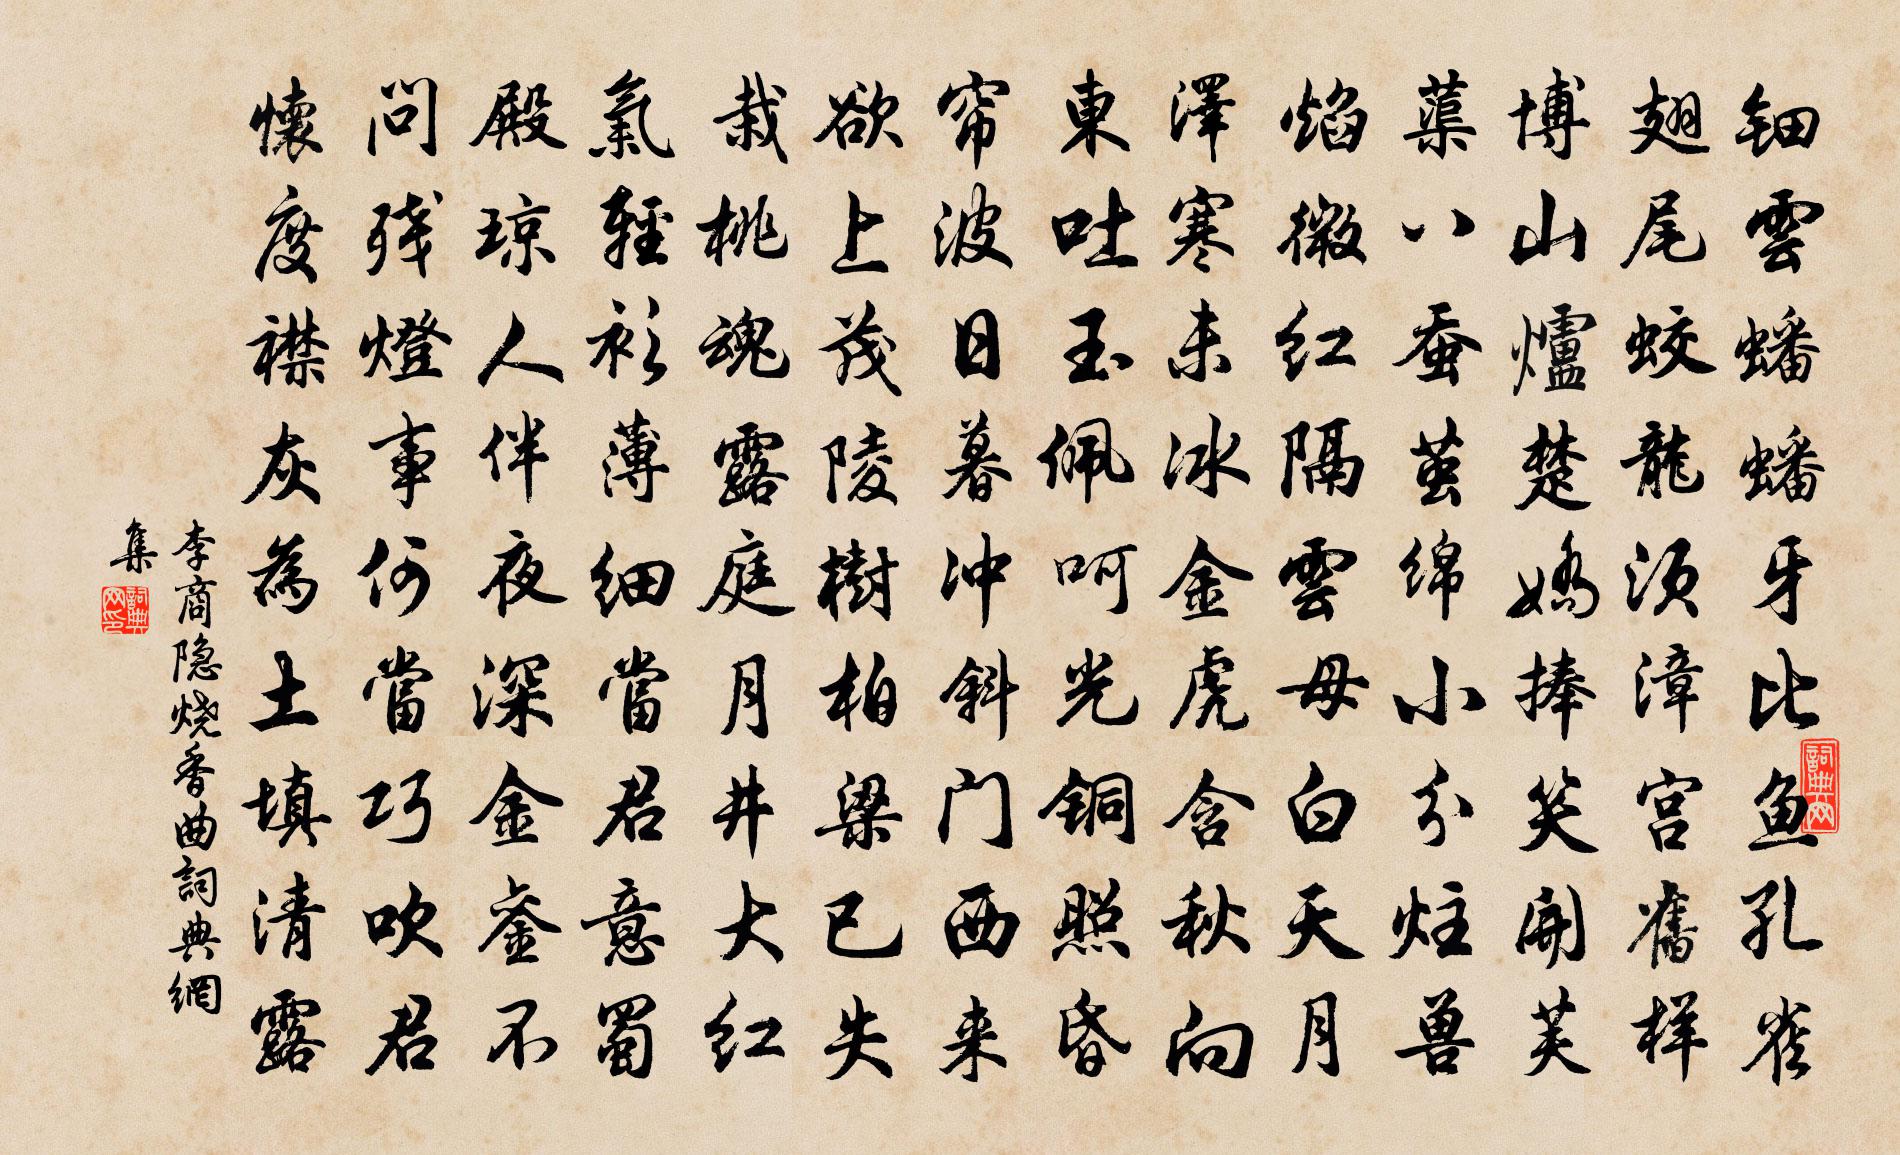 钿雲蟠蟠牙比魚孔雀
翅尾蛟龍須漳宫舊样
博山爐楚嬌捧笑開芙
蕖八蚕茧绵小分炷兽
焰微红隔雲母白天月
澤寒未冰金虎含秋向
東吐玉佩呵光铜照昏
帘波日暮冲斜门西来
欲上茂陵樹柏梁已失
栽桃魂露庭月井大红
氣輕衫薄细當君意蜀
殿琼人伴夜深金銮不
問残燈事何當巧吹君
懷度襟灰為土填清露
李商隐烧香曲詞典網
集
詞典网
詞典网印